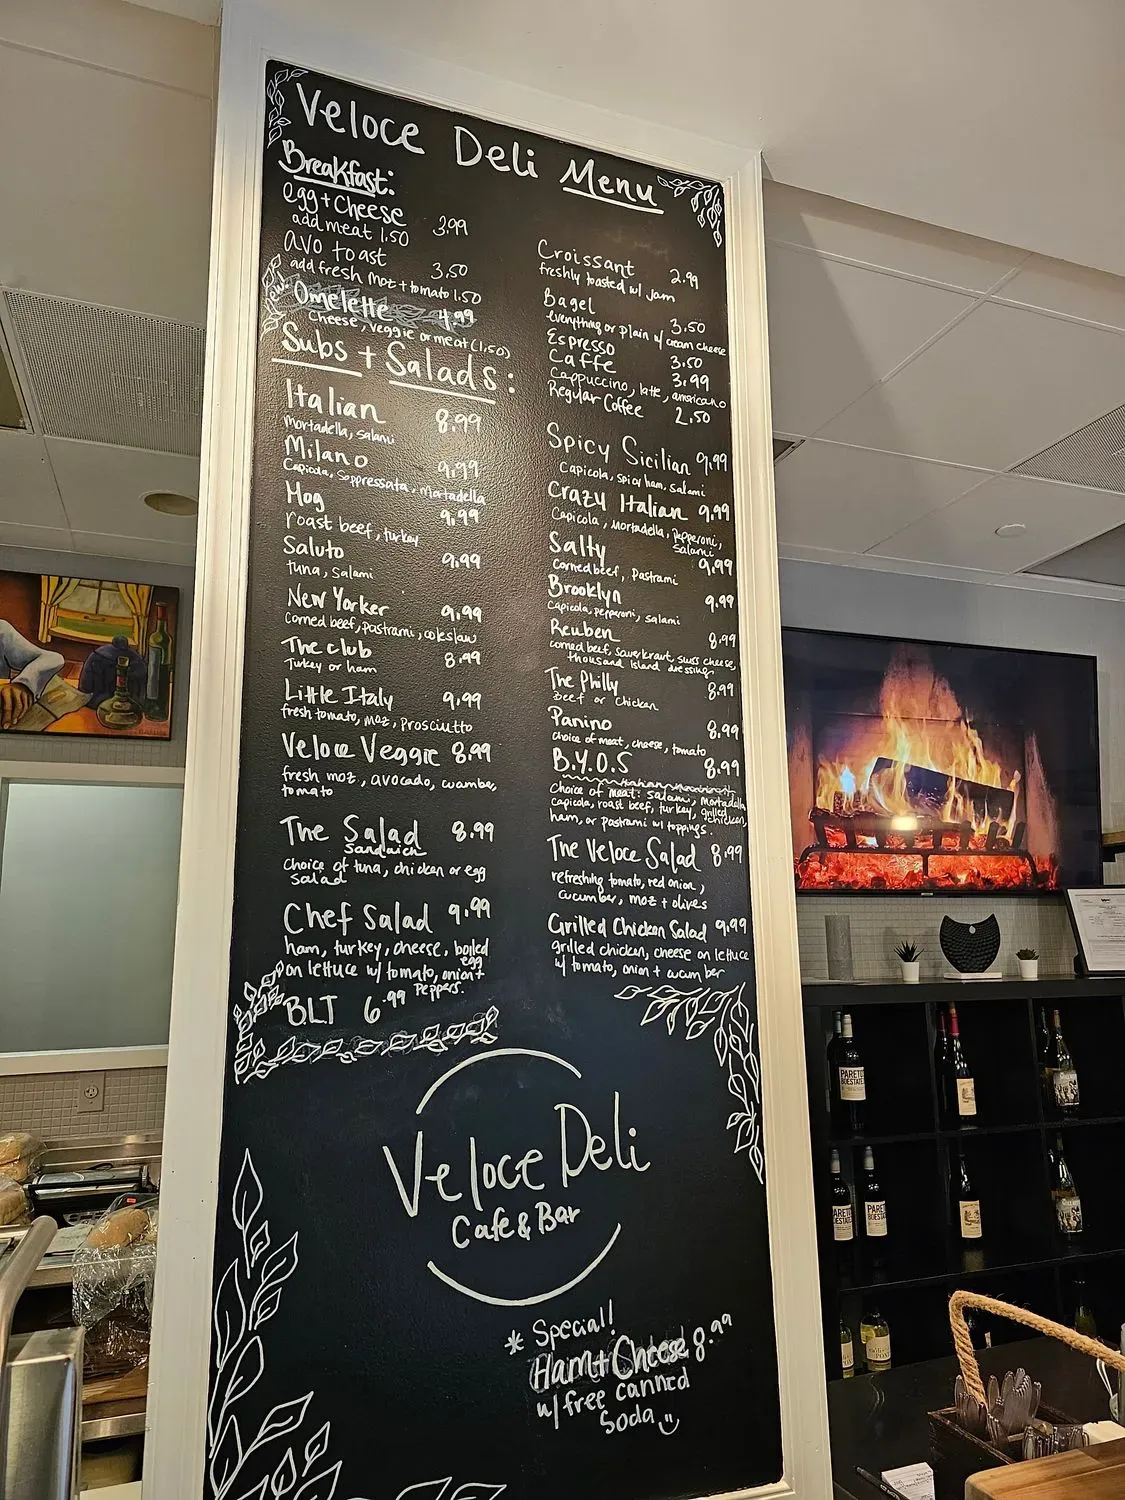 Veloce Deli Menu
Breakfast:
egg + cheese 3.99
add meat 1.50
avo toast 3.50
add fresh moz + tomato 1.50
new!
Omelette 4.99
Cheese, veggie or meat (1.50)
Croissant 2.99
freshly toasted w/ jam
Bagel 3.50
everything or plain w/ cream cheese
Espresso 3.50
Caffe 3.99
Cappuccino, latte, americano
Regular Coffee 2.50
Subs + Salads:
Italian 8.99
mortadella, salami
Milano 9.99
Capicola, Soppressata, mortadella
Hog 9.99
roast beef, turkey
Saluto 9.99
tuna, salami
New Yorker 9.99
Corned beef, pastrami, coleslaw
The club 8.99
Turkey or ham
Little Italy 9.99
fresh tomato, moz, prosciutto
Veloce Veggie 8.99
fresh moz, avocado, cucumber,
tomato
The Salad 8.99
Sandwich
choice of tuna, chicken or egg
salad
Chef Salad 9.99
ham, turkey, cheese, boiled
egg
on lettuce w/ tomato, onion +
peppers.
BLT 6.99
Spicy Sicilian 9.99
Capicola, spicy ham, salami
Crazy Italian 9.99
Capicola, mortadella, pepperoni,
salami
Salty 9.99
corned beef, pastrami
Brooklyn 9.99
Capicola, pepperoni, salami
Reuben 8.99
corned beef, sauerkraut, swiss cheese,
thousand island dressing
The Philly 8.99
Beef or chicken
Panino 8.99
choice of meat, cheese, tomato
B.Y.O.S 8.99
Choice of meat: salami, mortadella,
capicola, roast beef, turkey, grilled chicken,
ham, or pastrami w/ toppings.
The Veloce Salad 8.99
refreshing tomato, red onion,
cucumber, moz + olives
Grilled Chicken Salad 9.99
grilled chicken, cheese on lettuce
w/ tomato, onion + cucumber
Veloce Deli
Cafe & Bar
* Special!
Ham + Cheese 8.99
w/ free canned
Soda